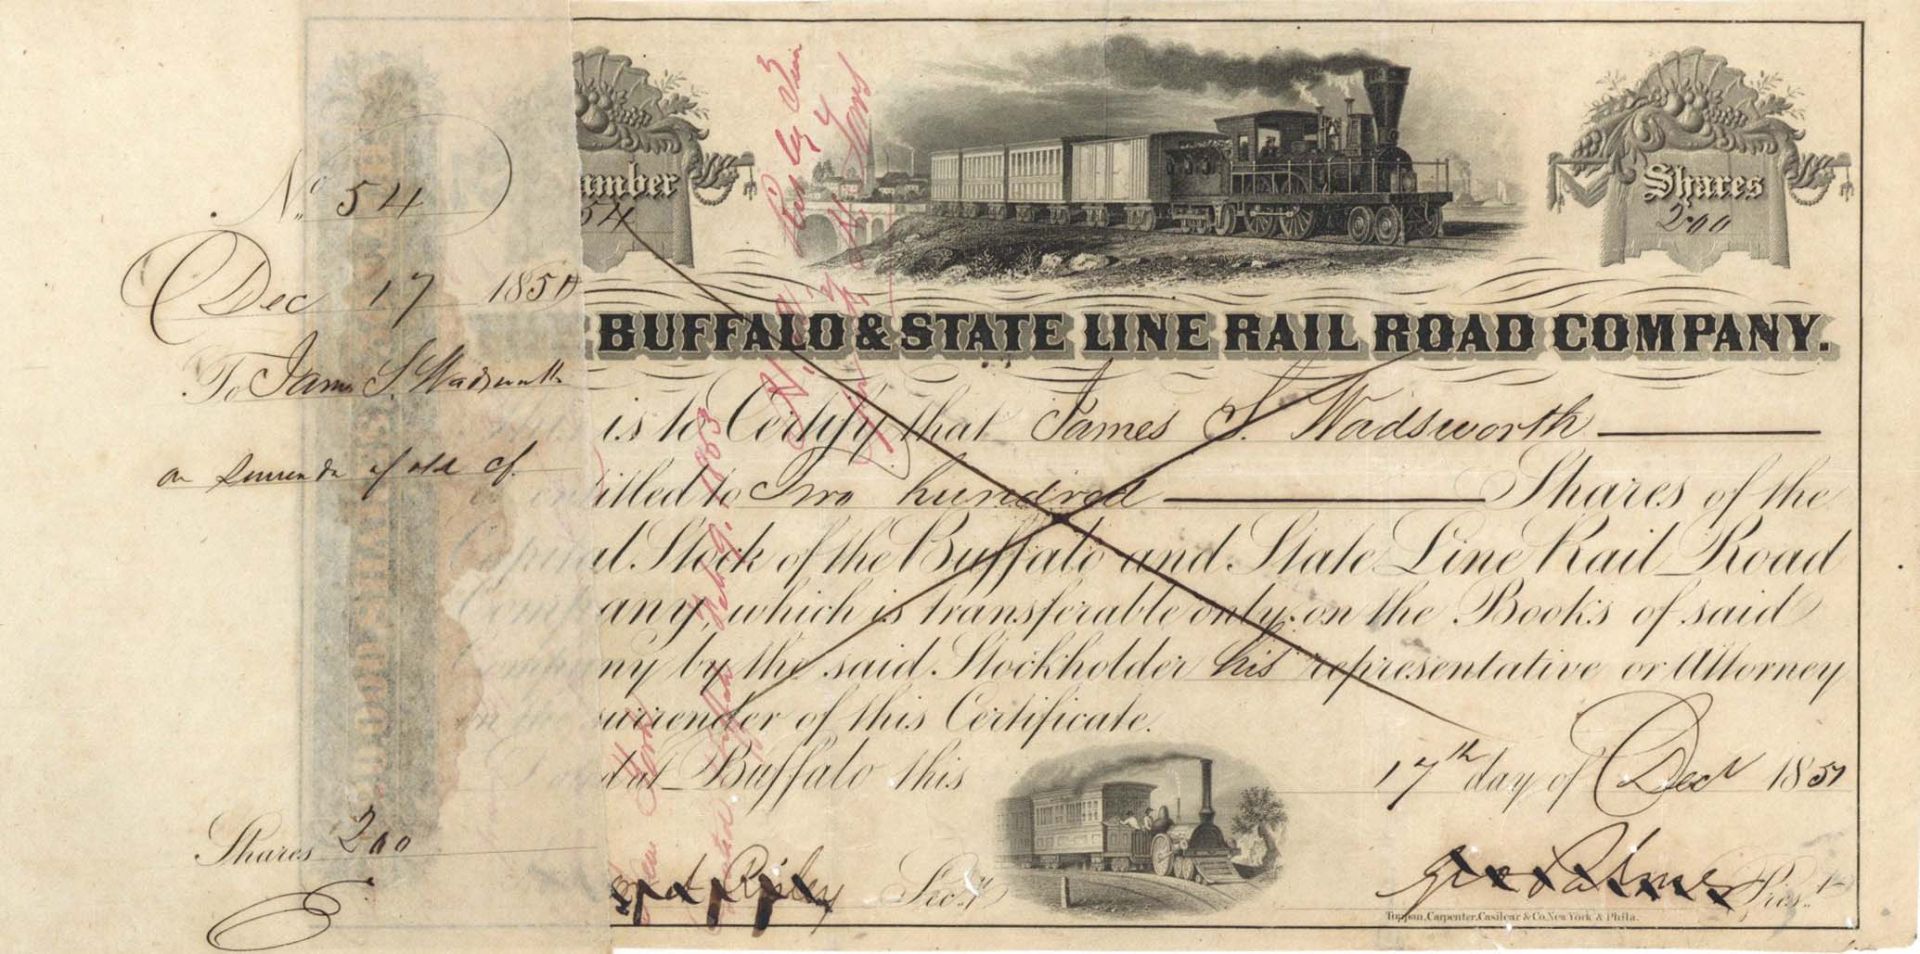 No. 54
Dec 17 185
To James S. Wadsworth
on surrender of old cf.
Shares 200
Number
54
Shares
200
BUFFALO & STATE LINE RAIL ROAD COMPANY.
is to Certify that James S. Wadsworth
entitled to Two hundred Shares of the
Capital Stock of the Buffalo and State Line Rail Road
Company, which is transferable only on the Books of said
Company by the said Stockholder his representative or Attorney
on the surrender of this Certificate.
Dated at Buffalo this 17th day of Decr 1857
Risley Secy.
Geo Palmer Prest.
Toppan, Carpenter, Casilear & Co. New York & Phila.
Feb 9. 1853